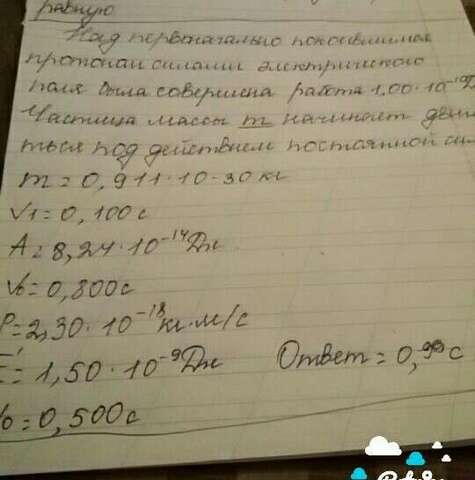 равную
Над первоначально покоившимся
протонам силами электрического
поля была совершена работа 1,00·10⁻¹⁰
Частица массы m начинает
ться под действием постоянной
m=0,911·10-30 кг
V1=0,100c
A=8,24·10⁻¹⁴Дж
V0=0,800c
P=2,30·10⁻¹⁸кг·м/с
E'=1,50·10⁻⁹Дж Ответ=0,990c
V0=0,500c